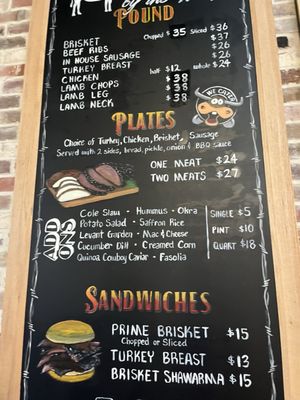 of the
POUND
Chopped $35 Sliced $36
BRISKET $37
BEEF RIBS $26
IN HOUSE SAUSAGE $26
TURKEY BREAST
CHICKEN half $12 whole $24
LAMB CHOPS $38
LAMB LEG $38
LAMB NECK $38
WE CATER
PLATES
Choice of Turkey, Chicken, Brisket, Sausage
Served with 2 sides, bread, pickle, onion & BBQ sauce
ONE MEAT $24
TWO MEATS $27
ADD ONS
Cole Slaw • Hummus • Okra
Potato Salad • Saffron Rice
Levant Garden • Mac & Cheese
Cucumber Dill • Creamed Corn
Quinoa Cowboy Caviar • Fasolia
SINGLE $5
PINT $10
QUART $18
SANDWICHES
PRIME BRISKET $15
Chopped or Sliced
TURKEY BREAST $13
BRISKET SHAWARMA $15